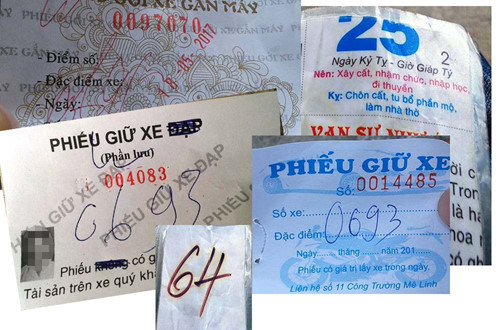 ĐỔI XE GẮN MÁY
0097070
- Điểm số:
- Đặc điểm xe:
- Ngày:
8-05-2017
25
2
Ngày Kỷ Tỵ - Giờ Giáp Tý
Nên: Xây cất, nhậm chức, nhập học,
đi thuyền
Kỵ: Chôn cất, tu bổ phần mộ,
làm nhà thờ
VẠN SỰ
PHIẾU GIỮ XE ĐẠP
(Phần lưu)
004083
0693
Phiếu không có giá
Tài sản trên xe quý khá
64
PHIẾU GIỮ XE
Số: 0014485
Số xe: 0693
Đặc điểm:
Ngày...... tháng ...... năm 201
Phiếu có giá trị lấy xe trong ngày.
Liên hệ số 11 Công Trường Mê Linh